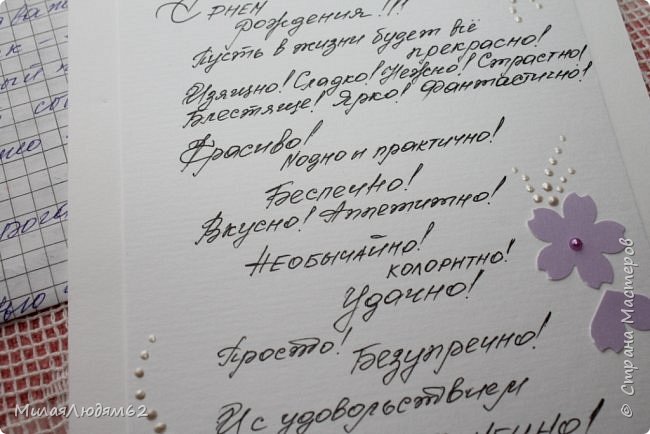 С днем
рождения!!!
Пусть в жизни будет всё
прекрасно!
Изящно! Сладко! Нежно! Страстно!
Блестяще! Ярко! Фантастично!
Красиво!
Модно и практично!
Беспечно!
Вкусно! Аппетитно!
Необычайно!
колоритно!
Удачно!
Просто!
Безупречно!
И с удовольствием
© Страна Мастеров
МилаяЛюдям62